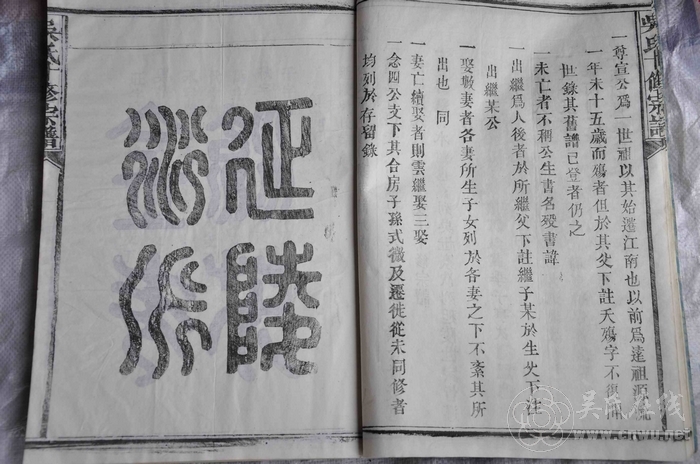 吳氏十修宗譜
一尊宣公爲一世祖以其始遷江南也以前爲遠祖源流
一年未十五歲而殤者但於其父下註夭殤字不復
世錄其舊譜已登者仍之
一未亡者不稱公生書名歿書諱
一出繼爲人後者於所繼父下註繼子某於生父下注
出繼某公
一娶數妻者各妻所生子女列於各妻之下不紊其所
出也 同
一妻亡續娶者則雲繼娶三娶
一念四公支下其合房子孫式微及遷徙從未同修者
均列於存留錄
延陵
派
吳氏十修宗譜
吴氏在线